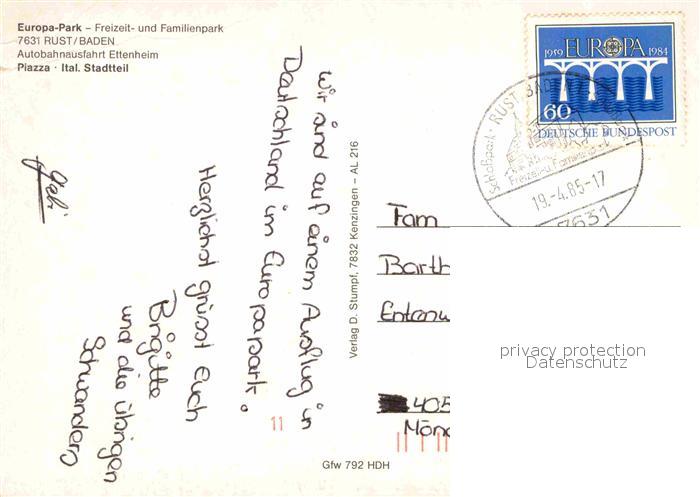 Europa-Park – Freizeit- und Familienpark
7631 RUST/BADEN
Autobahnausfahrt Ettenheim
Piazza · Ital. Stadtteil
Wir sind auf einem Ausflug in
Deutschland im Europapark.
Herzlichst grüsst Euch
Brigitte
und die übrigen
Schwanders
Gabi
Verlag D. Stumpf, 7832 Kenzingen – AL 216
1959 EUROPA 1984
60
DEUTSCHE BUNDESPOST
Schloßpark · RUST BADEN
Freizeit-u. Familienpark
19.-4.85-17
7631
Fam
Barth
privacy protection
Datenschutz
405
Mönc
11
Gfw 792 HDH